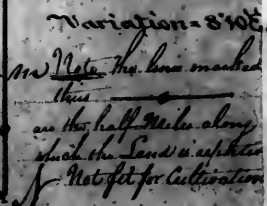 Variation = 8°40'E.
Note the lines marked
thus
are the half Miles along
which the Land is
Not fit for Cultivation